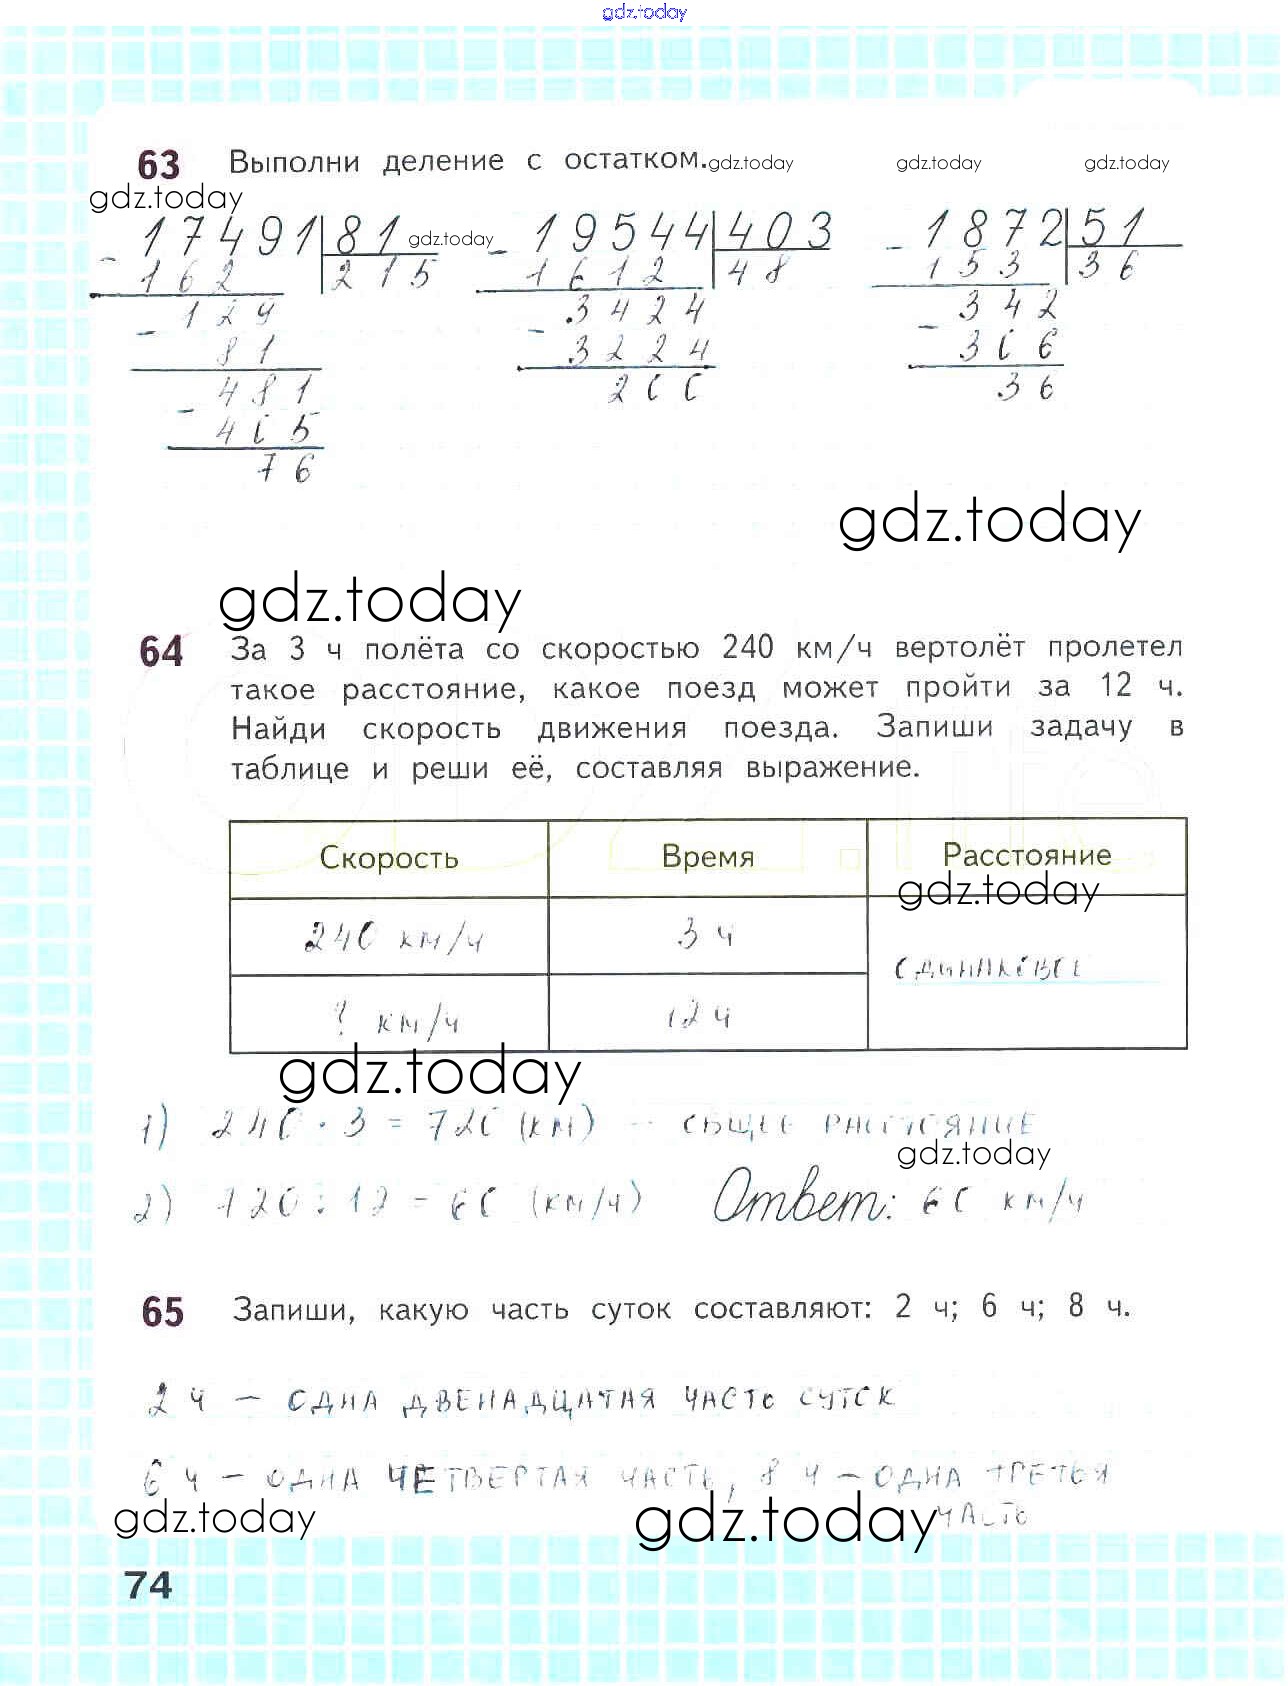 gdz.today
63 Выполни деление с остатком. gdz.today gdz.today gdz.today
gdz.today
- 17491 | 81 gdz.today - 19544 | 403 - 1872 | 51
162 215 1612 48 153 36
- 129 3424 342
81 - 3224 - 306
- 481 200 36
405
76
gdz.today
gdz.today
64 За 3 ч полёта со скоростью 240 км/ч вертолёт пролетел
такое расстояние, какое поезд может пройти за 12 ч.
Найди скорость движения поезда. Запиши задачу в
таблице и реши её, составляя выражение.
Скорость Время Расстояние
gdz.today
240 км/ч 3 ч
одинаковое
? км/ч 12 ч
gdz.today
1) 240 · 3 = 720 (км) – общее расстояние
gdz.today
2) 720 : 12 = 60 (км/ч) Ответ: 60 км/ч
65 Запиши, какую часть суток составляют: 2 ч; 6 ч; 8 ч.
2 ч – одна двенадцатая часть суток
6 ч – одна четвертая часть, 8 ч – одна третья
часть
gdz.today gdz.today
74